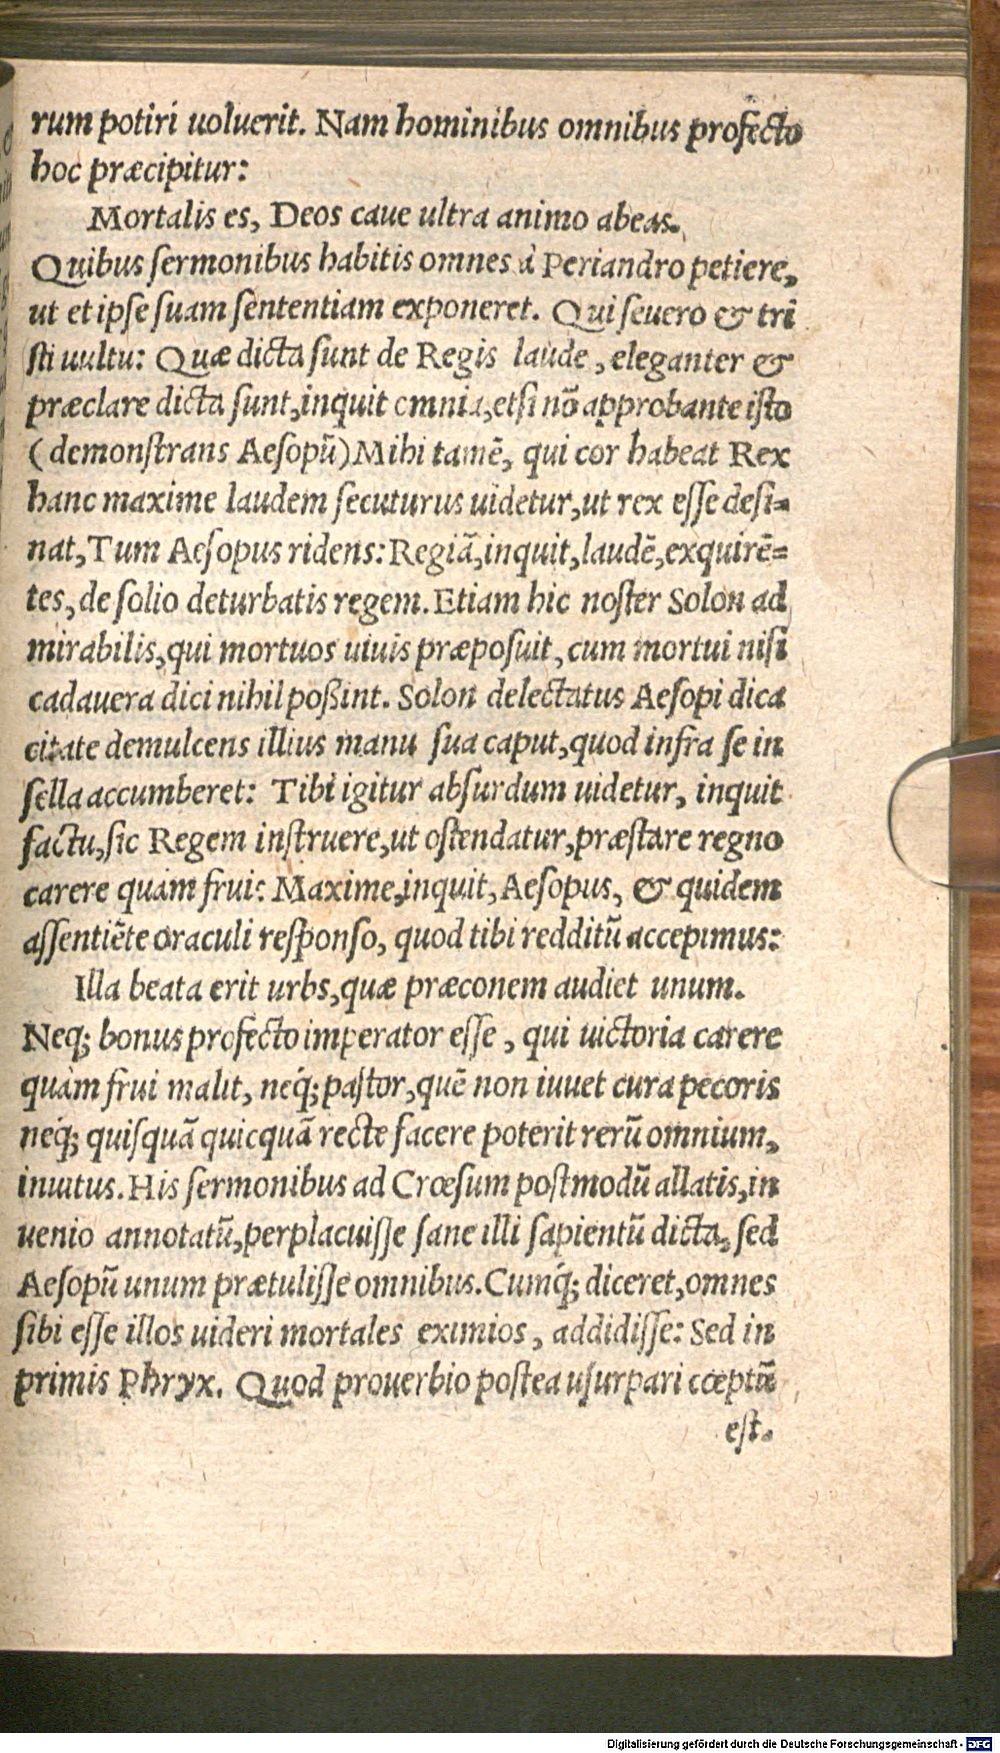 rum potiri uoluerit. Nam hominibus omnibus profecto
hoc præcipitur:
Mortalis es, Deos caue ultra animo abeas.
Quibus sermonibus habitis omnes à Periandro petiere,
ut et ipse suam sententiam exponeret. Qui seuero & tri
sti uultu: Quæ dicta sunt de Regis laude, eleganter &
præclare dicta sunt, inquit omnia, etsi nō approbante isto
(demonstrans Aesopū) Mihi tamē, qui cor habeat Rex
hanc maxime laudem secuturus uidetur, ut rex esse desi=
nat, Tum Aesopus ridens: Regiā, inquit, laudē, exquirē=
tes, de solio deturbatis regem. Etiam hic noster Solon ad
mirabilis, qui mortuos uiuis præposuit, cum mortui nisi
cadauera dici nihil poßint. Solon delectatus Aesopi dica
citate demulcens illius manu sua caput, quod infra se in
sella accumberet: Tibi igitur absurdum uidetur, inquit
factu, sic Regem instruere, ut ostendatur, præstare regno
carere quàm frui: Maxime, inquit, Aesopus, & quidem
assentiēte oraculi responso, quod tibi redditū accepimus:
Illa beata erit urbs, quæ præconem audiet unum.
Neq; bonus profecto imperator esse, qui uictoria carere
quàm frui malit, neq́; pastor, quē non iuuet cura pecoris
neq́; quisquā quicquā recte facere poterit rerū omnium,
inuitus. His sermonibus ad Crœsum postmodū allatis, in
uenio annotatū, perplacuisse sane illi sapientū dicta, sed
Aesopū unum prætulisse omnibus. Cumq́; diceret, omnes
sibi esse illos uideri mortales eximios, addidisse: Sed in
primis Phryx. Quod prouerbio postea usurpari cœptū
est.
Digitalisierung gefördert durch die Deutsche Forschungsgemeinschaft - DFG